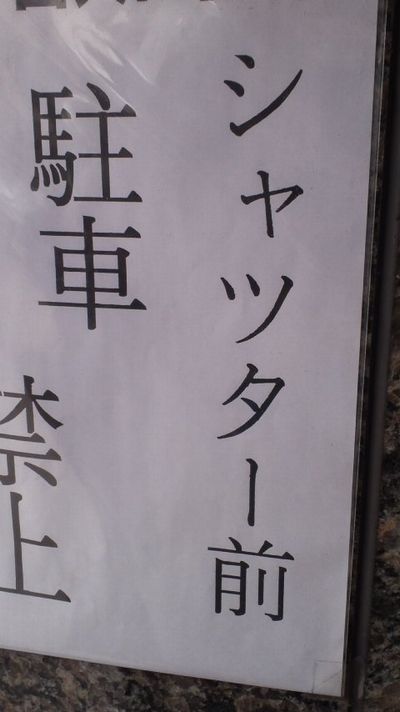 シャツター前
駐車
禁止